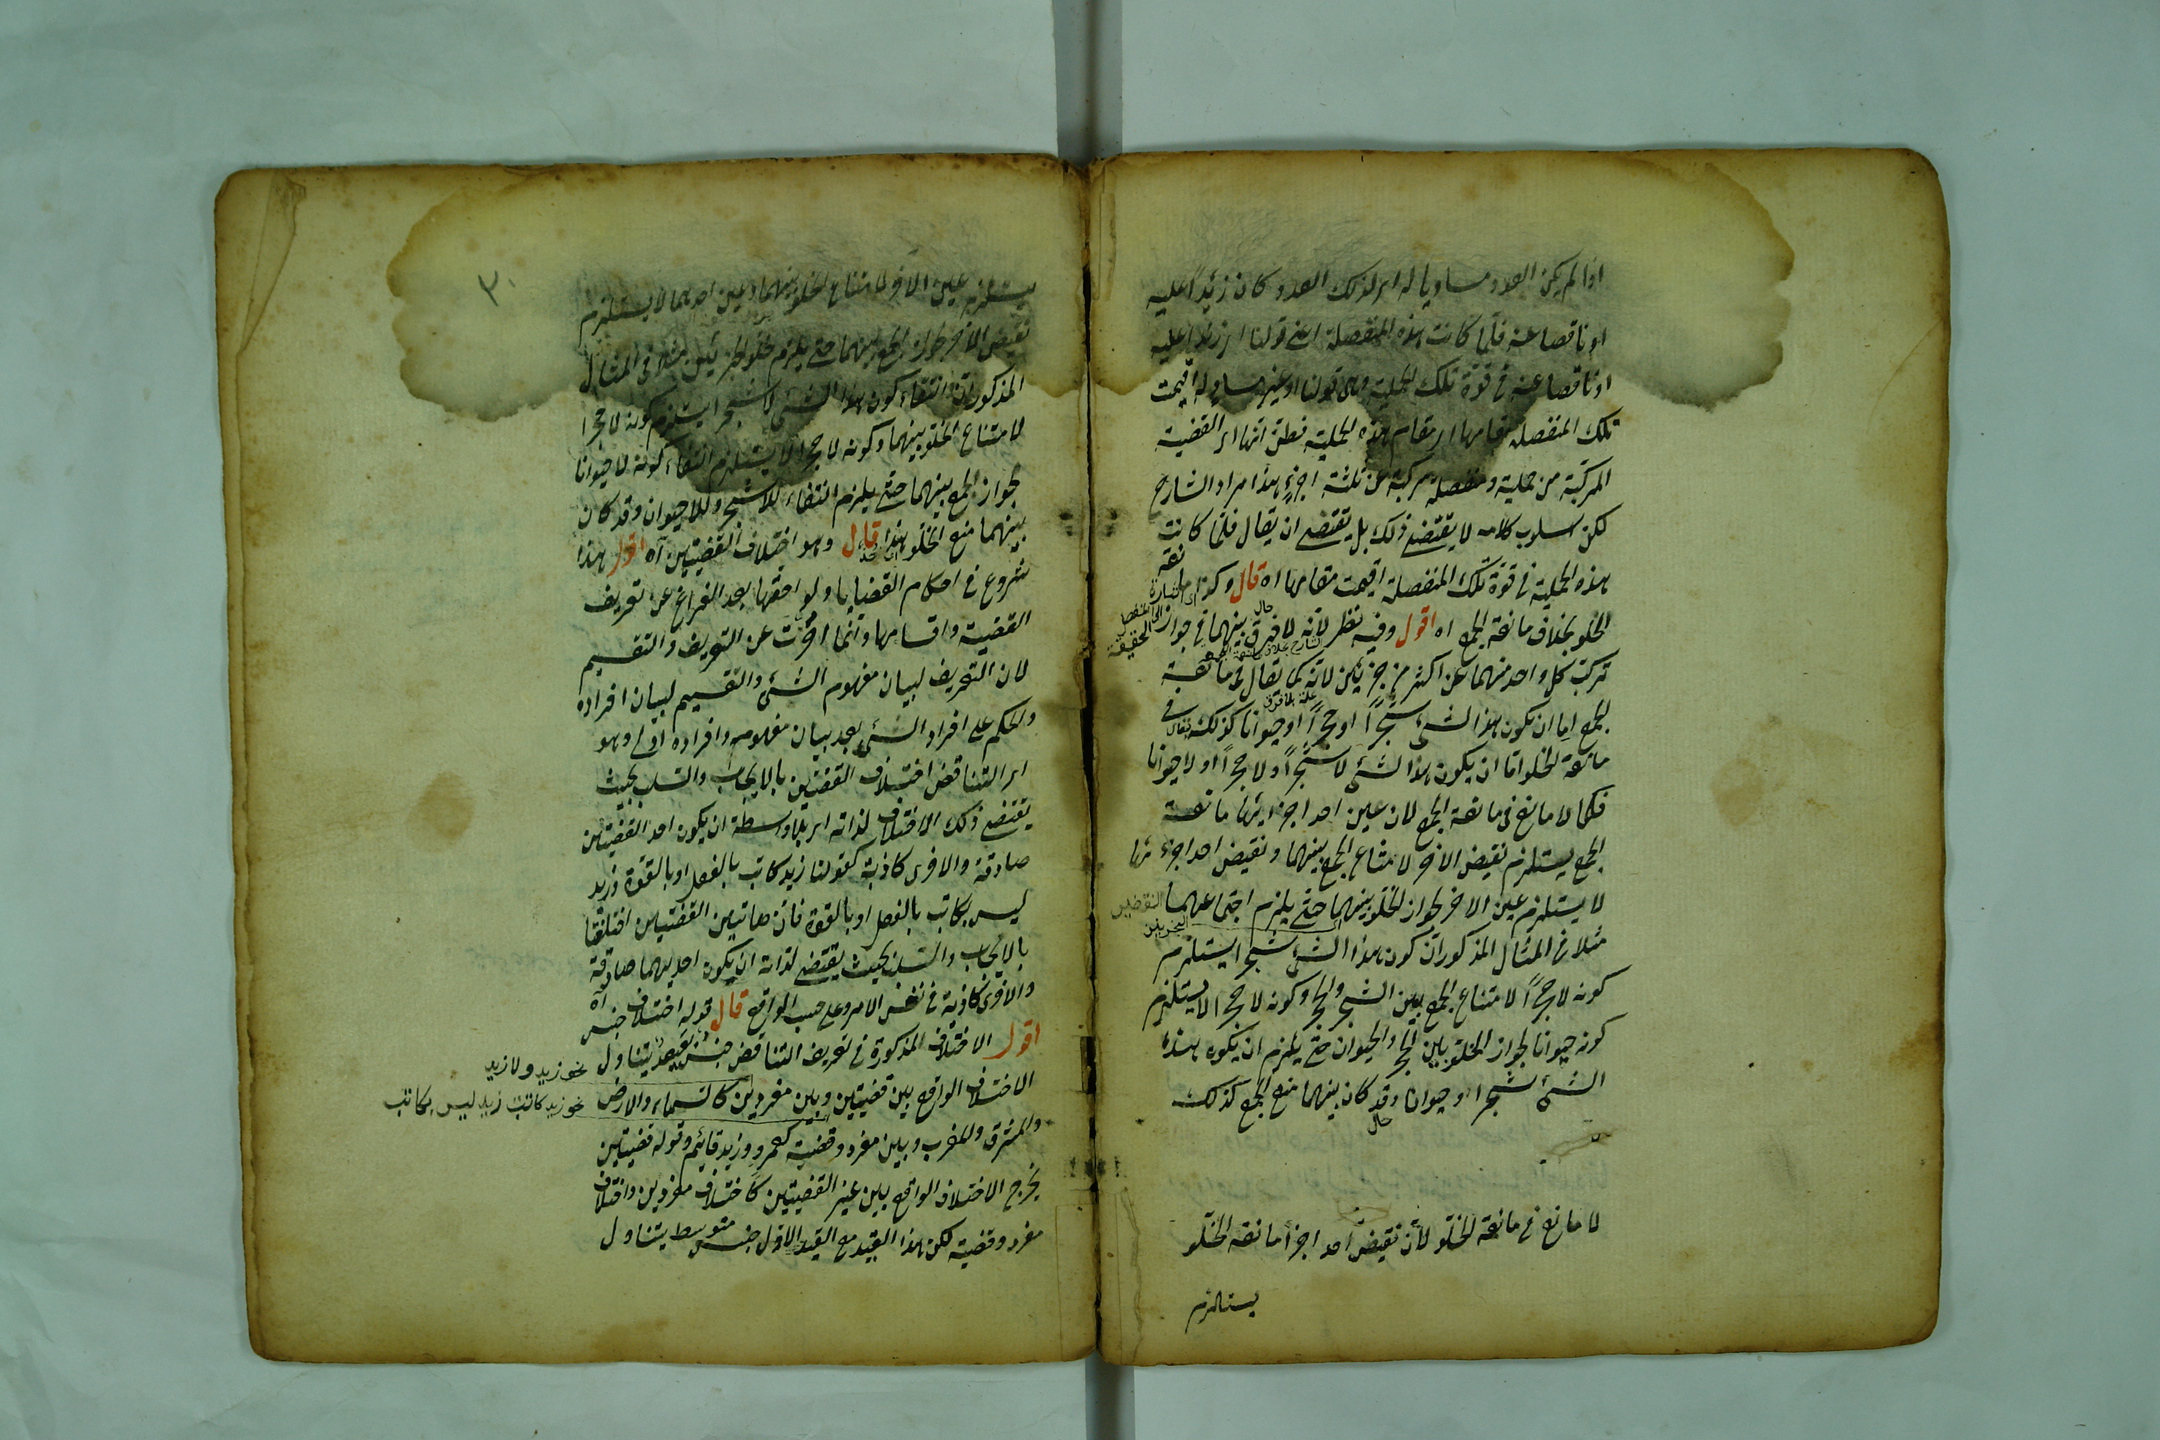 اذا لم يكن العدد مساويا له اى لذلك العدد كان زئدًا عليه
او ناقصا عنه فلما كانت هذه المنفصلة اعنى قولنا اى زئدا عليه
او ناقصا عنه فى قوّة تلك الحملية وهى قولنا او غير مساو له اقيمت
تلك المنفصلة مقامها اى مقام هذه الحملية فظنّ انها اى القضية
المركبّة من حملية ومنفصلة مركبة من ثلثة اجزءٍ هذا مراد الشارح
لكن اسلوب كلامه لا يقتضى ذلك بل يقتضى ان يقال فلمّا كانت
هذه الحملية فى قوّة تلك المنفصلة اقيمت مقامها اه قال وكذا مانعة
الخلو بخلاف مانعة الجمع اه اقول وفيه نظر لانه لا فرق بينهما فى جواز
تركب كل واحد منهما عن اكثر من جزئين لانه كما يقال فى مانعة
الجمع اما ان يكون هذا الشئ شجرًا او حجرًا او حيوانا كذلك يقال فى
مانعة الخلو امّا ان يكون هذا الشئ لا شجرًا ولا حجرًا او لا حيوانا
فكما لا مانع فى مانعة الجمع لان عين احد اجزائها مانعة
الجمع يستلزم نقيض الاخر لامتناع الجمع بينهما ونقيض احد اجزءئها
لا يستلزم عين الاخر لجواز الخلو بينهما حتى يلزم اجتماعهما
مثلا فى المثال المذكور انّ كون هذا الشئ شجرا يستلزم
كونه لا حجرًا لامتناع الجمع بين الشجر والحجر وكونه لا حجرا لا يستلزم
كونه حيوانا لجواز الخلو بين الحجر والحيوان حتى يلزم ان يكون هذا
الشئ شجرا او حيوانا وقد كان بينهما منع الجمع كذلك
حال
لا مانع فى مانعة الخلو لأن نقيض احد اجزأ مانعة الخلو
يستلزم
٣٠
يستلزم عين الاخر لامتناع الخلو بينهما وعين احدهما لا يستلزم
نقيض الاخر لجواز الجمع بينهما حتى يلزم خلو الجزئين مثلا فى المثال
المذكور انّ انتفاء كون هذا الشئ لا شجرا يستلزم كونه لا حجرا
لامتناع الخلو بينهما وكونه لا حجرا لا يستلزم انتفاء كونه لا حيوانا
لجواز الجمع بينهما حتى يلزم انتفاء اللاشجر واللاحيوان وقد كان
بينهما منع الخلو هذا قال وهو اختلاف القضيتين آه اقول هذا
شروع فى احكام القضايا ولواحقها بعد الفراغ عن تعريف
القضية واقسامها وانّما اخّرت عن التعريف والتقسيم
لان التعريف لبيان مفهوم الشئ والتقسيم لبيان افراده
والحكم على افراد الشئ بعد بيان مفهومه وافراده اولى وهو
اى التناقض اختلاف القضيتين بالايجاب والسلب بحيث
يقتضى ذلك الاختلاف لذاته اى بلا واسطة ان يكون احد القضيتين
صادقة والاخرى كاذبة كقولنا زيد كاتب بالفعل او بالقوة وزيد
ليس بكاتب بالفعل او بالقوة فانّ هاتين القضيتين اختلفتا
بالايجاب والسلب بحيث يقتضى لذاته ان يكون احديهما صادقة
والاخرى كاذبة فى نفس الامر وعلى حسب الواقع قال قوله اختلاف جنس آه
اقول الاختلاف المذكورة فى تعريف التناقض جنس بعيد يتناول
نحو زيد ولا زيد
الاختلاف الواقع بين قضيتين وبين مفردين كالسماء والارض
نحو زيد كاتب زيد ليس بكاتب
والمشرق والمغرب وبين مفرد وقضية كعمرو وزيد قايئم وقوله قضيتين
يخرج الاختلاف الواقع بين غير القضيتين كاختلاف مفردين واختلاف
مفرد وقضية لكن هذا القيد مع القيد الاوّل جنس متوسط يتناول